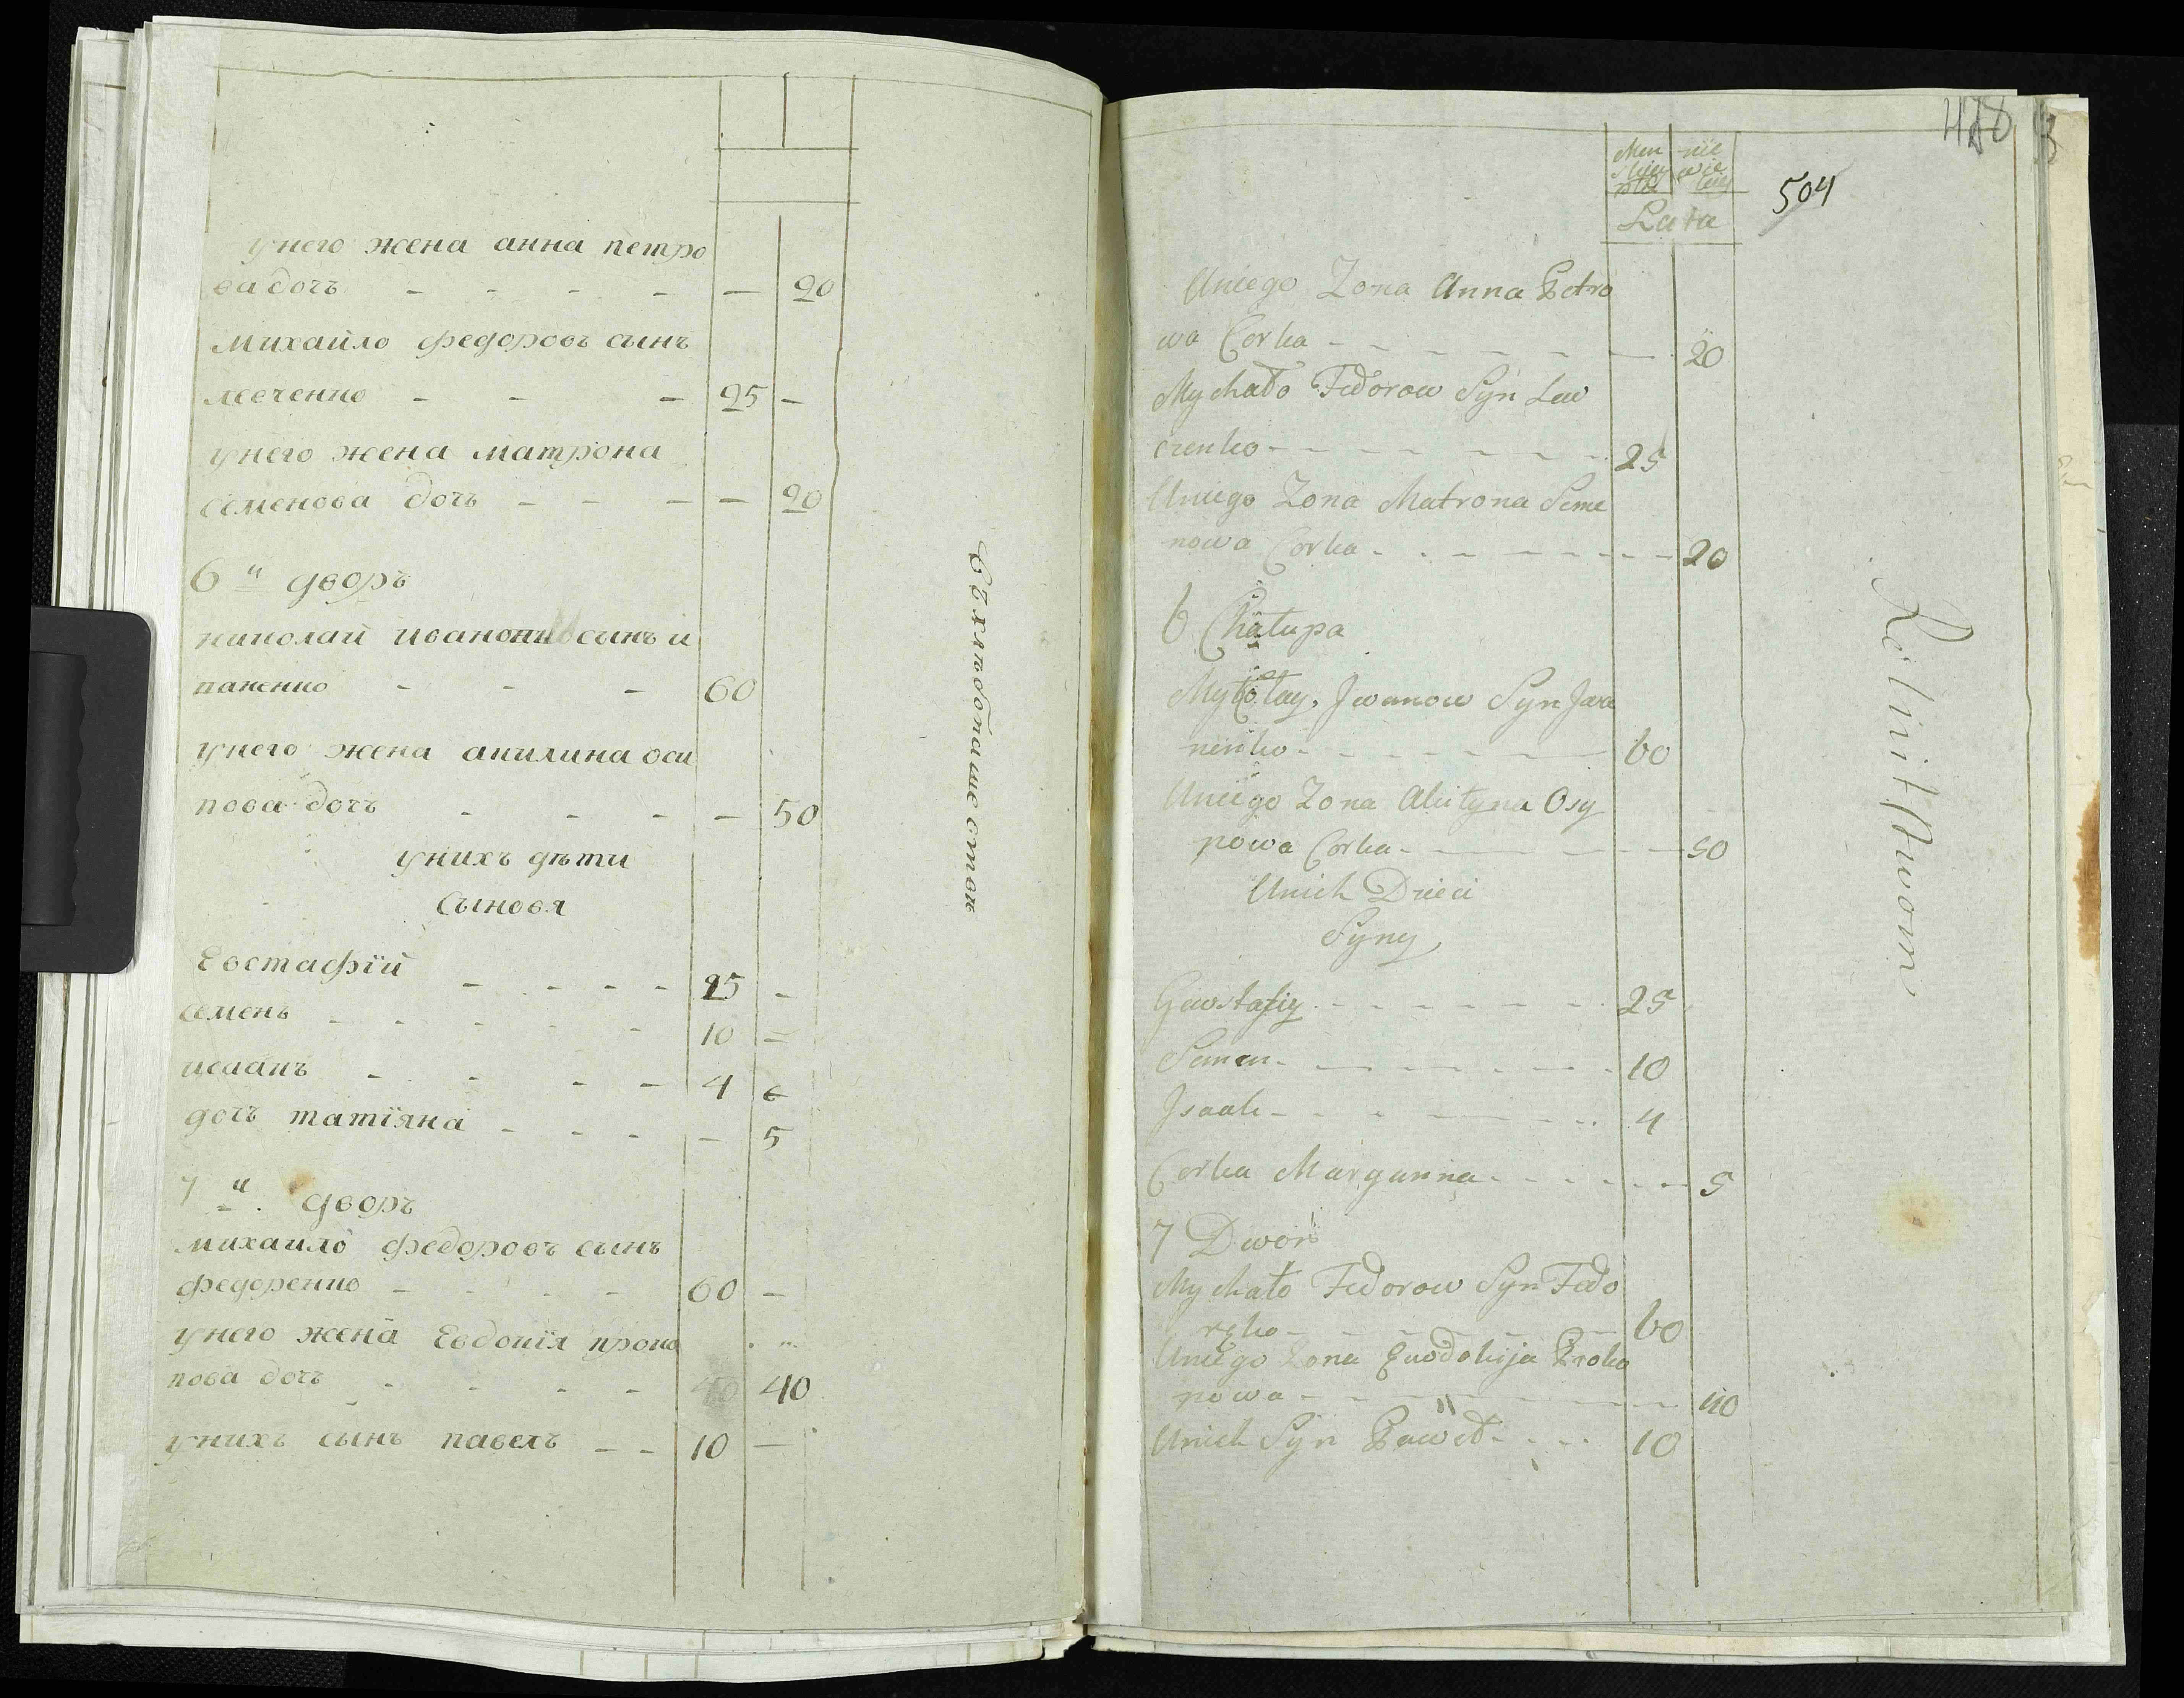 унего жена анна петро
ва дочъ - - - - — 20
михайло федоровъ сынъ
левченко - - - 25 -
унего жена матрона
семенова дочъ - - - — 20
6 й дворъ
николай иванов сынъ и
ваненко - - - 60
унего жена акилина оси
пова дочъ - - - - — 50
унихъ дѣти
Сыновя
Евстафїй - - - - - 25 -
семенъ - - - - - 10 -
исаакъ - - - - 4
дочъ татїяна - - - - — 5
7 й. дворъ
михайло федоровъ сынъ
федоренко - - - - 60 -
унего жена Евдокїя проко
пова дочъ - - - - 40
унихъ сынъ павелъ - - 10 —
Въ хлѣбопашествѣ
478
504
Lata
Uniego Zona Anna Petro
wa Corka - - - - - - — 20
Mychało Fedorow Syn Lew
czenko - - - - - - - 25
Uniego Zona Matrona Seme
nowa Corka - - - - - - - 20
6 Chałupa
Mykołay Jwanow Syn Jwa
nenko - - - - - - 60
Uniego Zona Akityna Osy
powa Corka - — - - — 50
Unich Dzieci
Syny
Gewstafiy - - - - - - - 25
Semen - - - - - - 10
Jsaak - - - - - - - 4
Corka Maryanna - - - - - - 5
7 Dwor
Mychało Fedorow Syn Fedo
ręko - - - - - - 60
Uniego Zona Ewdokija Proko
powa - - - - - - - 40
Unich Syn Paweł - - - 10
Rolnitstwom